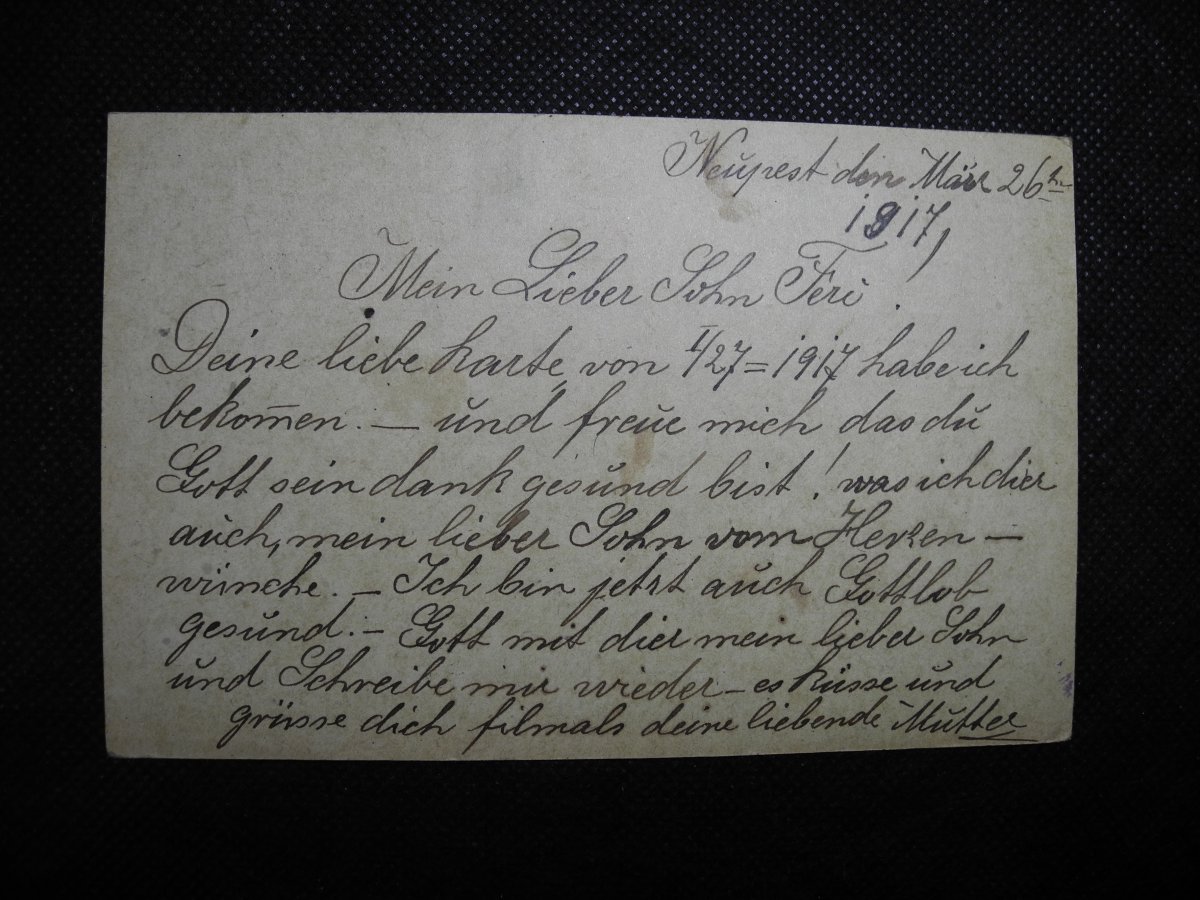 Neupest den März 26ten
1917,
Mein Lieber Sohn Feri.
Deine liebe Karte von I/27=1917 habe ich
bekom̅en. — und freue mich das du
Gott sein dank gesund bist! was ich dier
auch, mein lieber Sohn vom Herzen —
wünche. — Ich bin jetzt auch Gottlob
gesund. — Gott mit dier mein lieber Sohn
und Schreibe mir wieder — es küsse und
grüsse dich filmals deine liebende Mutter